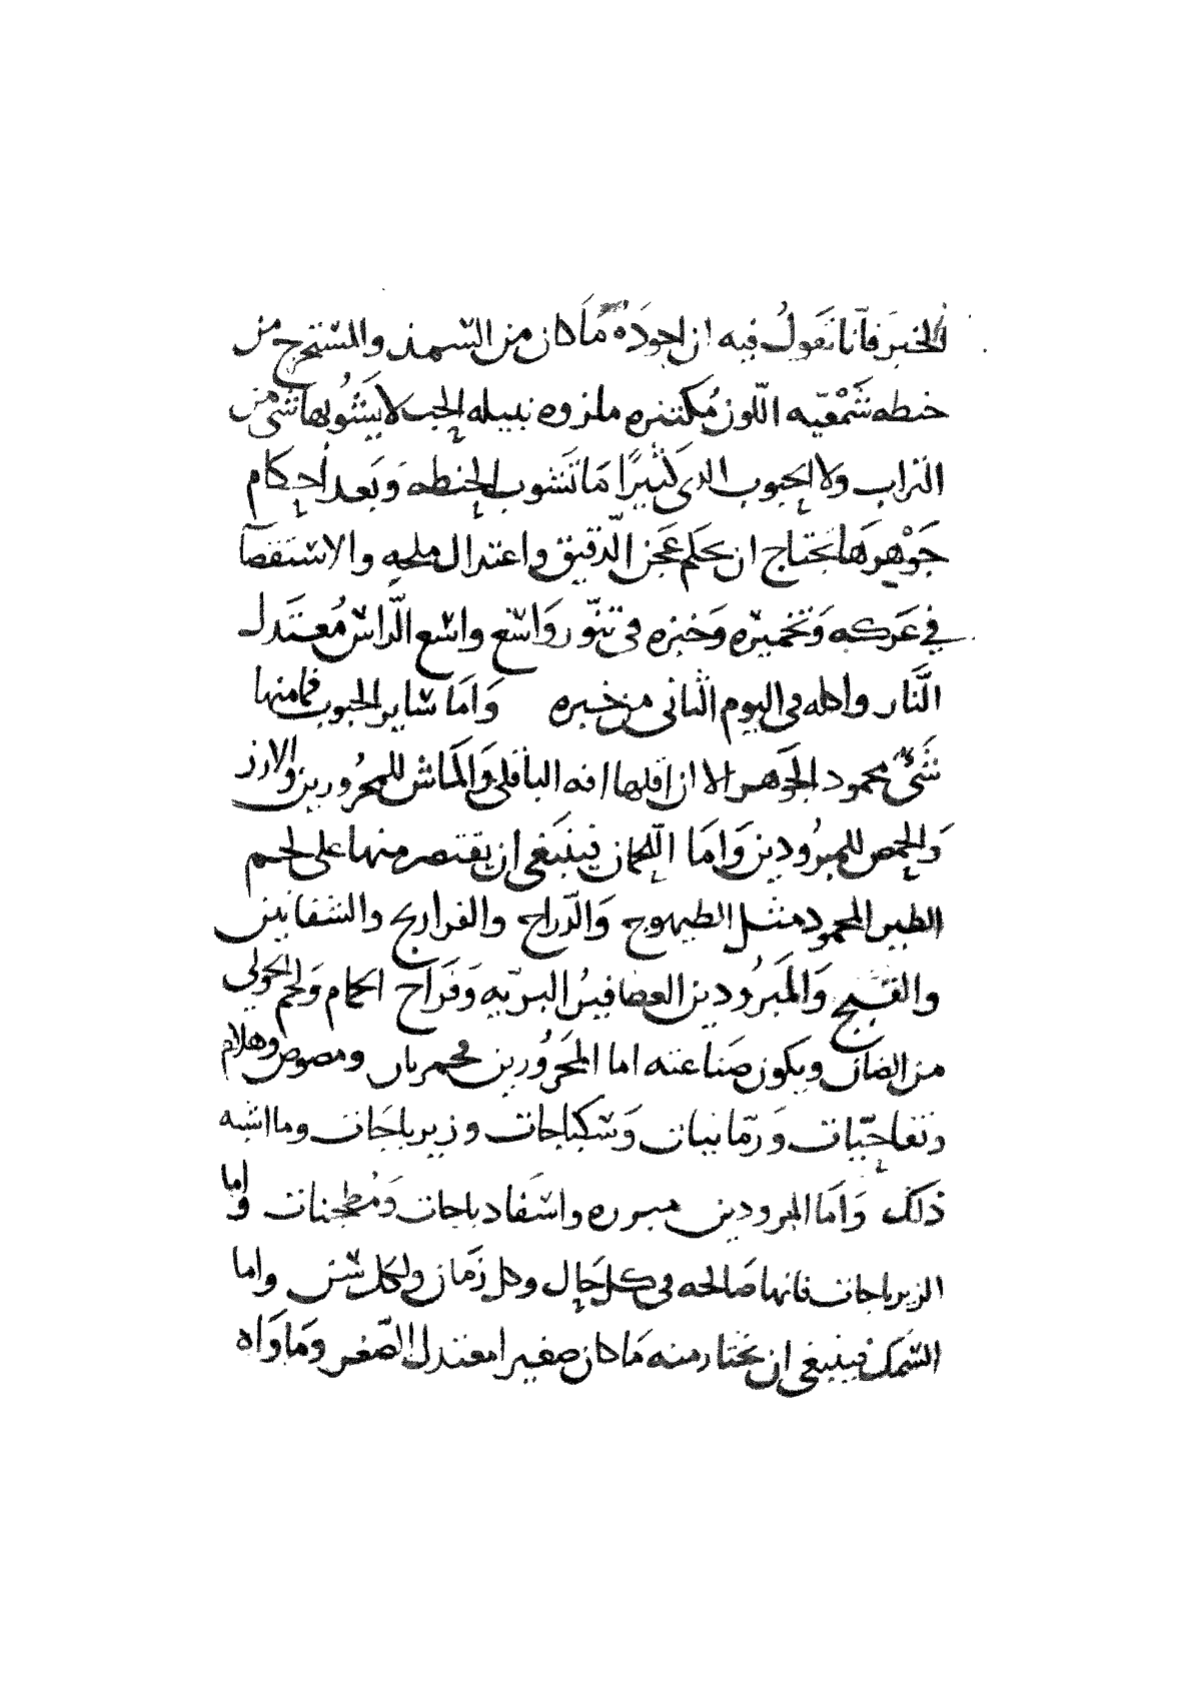 الخبز فانا نقول فيه ان اجوده ما كان من السميذ والمستخرج من
حنطه شمعيه اللون مكتنزه ملززه نبيله الحب لا يشوبها شى من
التراب ولا الحبوب الذى كثيرا ما تشوب الحنطه وبعد احكام
جوهرها تحتاج ان يحكم عجن الدقيق واعتدال ملحه والاستقصآ
فى عركه وتخميره وخبزه فى تنور واسع واسع الراس معتدل
النار واكله فى اليوم الثانى من خبزه واما ساير الحبوب فما منها
شىء محمود الجوهر الا ان اقلها افه الباقلى والماش للمحرورين والارز
والحمص للمبرودين واما اللحمان فينبغى ان يقتصر منها على لحم
الطير المحمود مثل الطيهوج والدراج والفراريج والشفانين
والقبج والمبرودين العصافير البريه وفراخ الحمام ولحم الحولى
من الضان ويكون صناعته اما المحرورين ومصوص وهلام
وتفاحيات ورمانيات وسكباجات وزيرباجات وما اشبه
ذلك واما المبرودين مبزره واسفادباجات ومطجنات واما
الزيرباجات فانها صالحه فى كل حال وكل زمان ولكل سن واما
السمك فينبغى ان يختار منه ما كان صغيرا معتدل الصغر وماواه